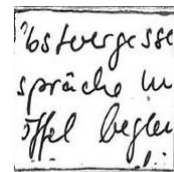 bstvergesse
spräche in
öffel beglei